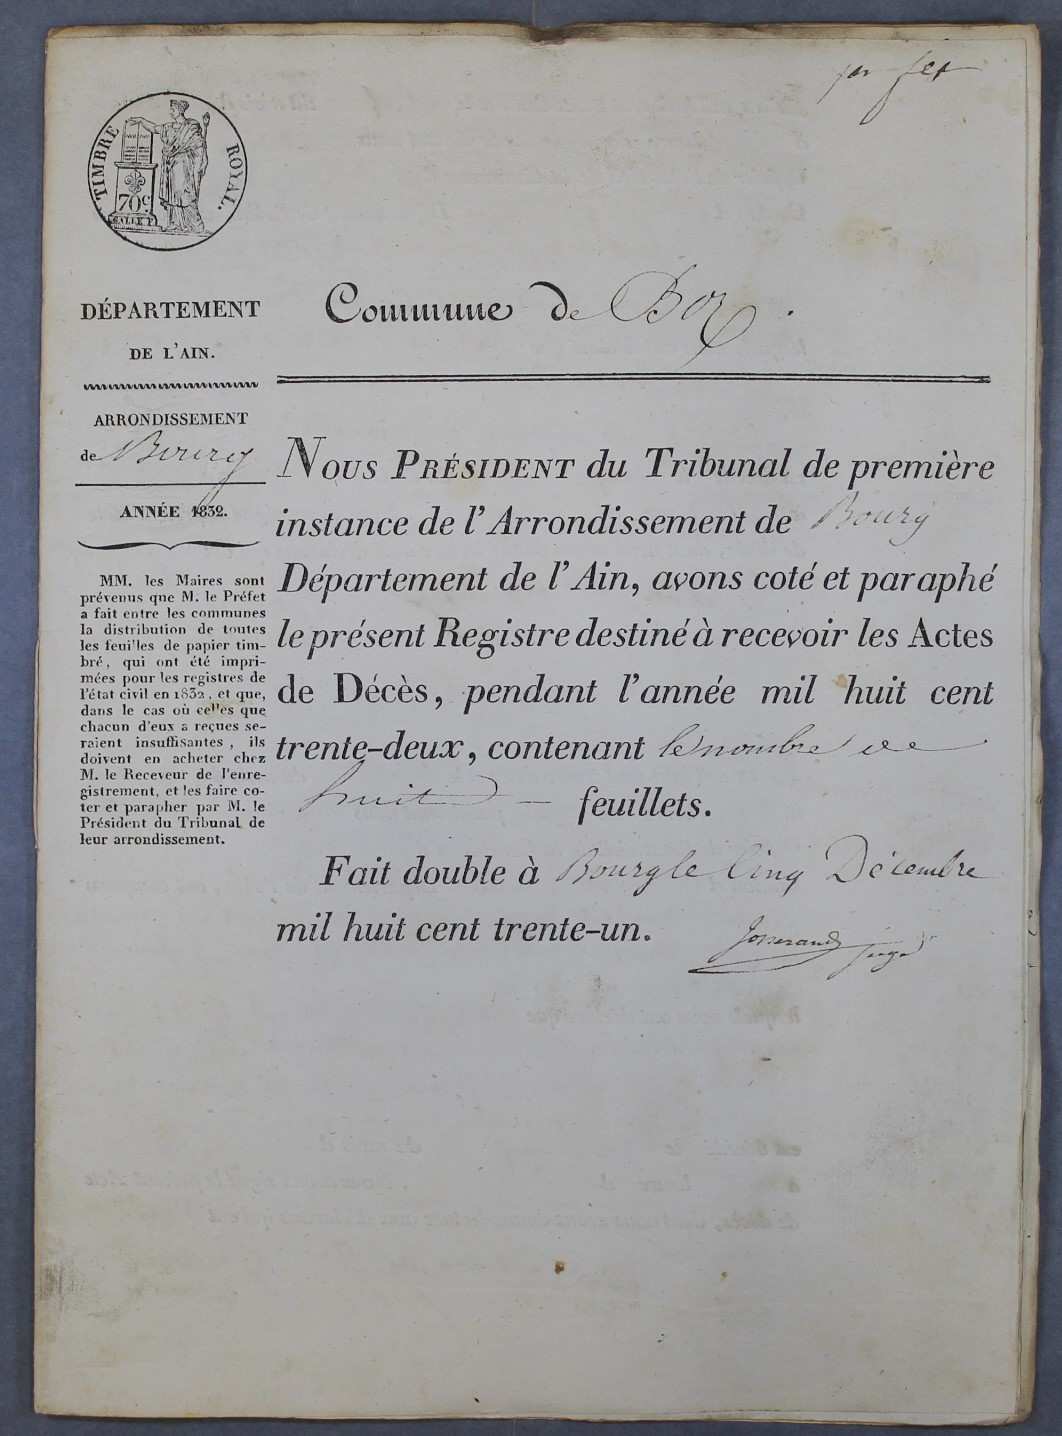 TIMBRE ROYAL.
70c
DÉPARTEMENT
DE L'AIN.
ARRONDISSEMENT
de Bourg
ANNÉE 1832.
MM. les Maires sont
prévenus que M. le Préfet
a fait entre les communes
la distribution de toutes
les feuilles de papier tim-
bré, qui ont été impri-
mées pour les registres de
l'état civil en 1832, et que,
dans le cas où celles que
chacun d'eux a reçues se-
raient insuffisantes, ils
doivent en acheter chez
M. le Receveur de l'enre-
gistrement, et les faire co-
ter et parapher par M. le
Président du Tribunal de
leur arrondissement.
Commune de Boz.
NOUS PRÉSIDENT du Tribunal de première
instance de l'Arrondissement de Bourg
Département de l'Ain, avons coté et paraphé
le présent Registre destiné à recevoir les Actes
de Décès, pendant l'année mil huit cent
trente-deux, contenant le nombre de
huit feuillets.
Fait double à Bourg le Cinq Décembre
mil huit cent trente-un.
Josserand juge